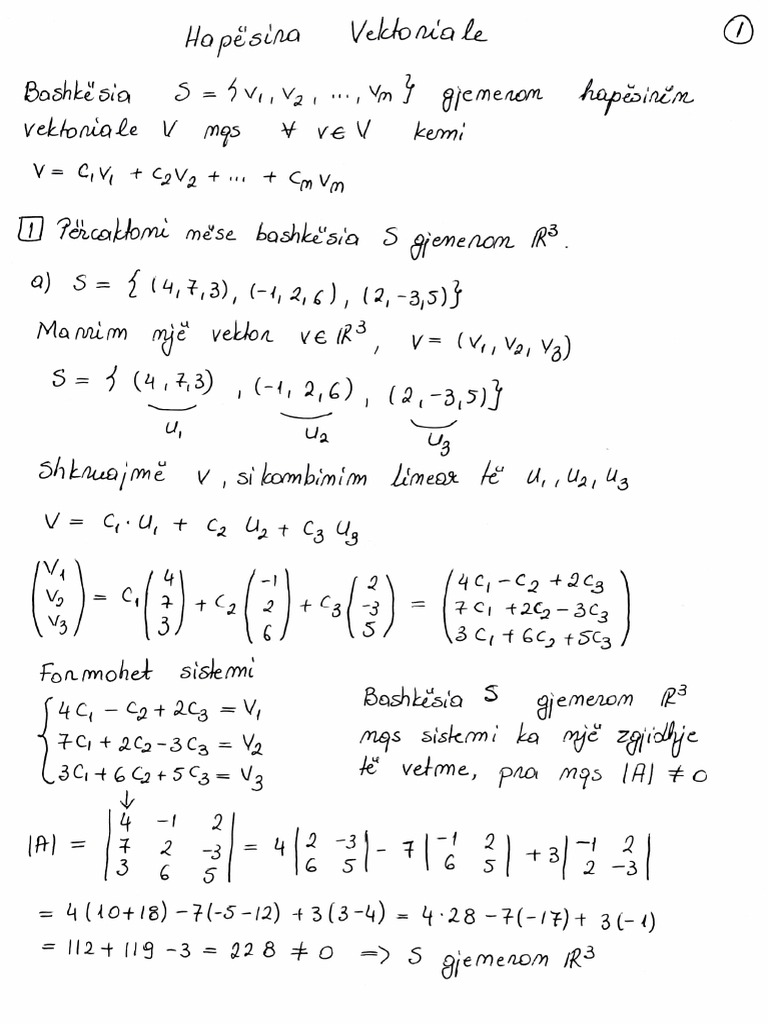 Hapësira Vektoriale
1
Bashkësia S = {v₁, v₂, ..., vₙ} gjeneron hapësirën
vektoriale V nqs ∀ v∈V kemi
v = c₁v₁ + c₂v₂ + ... + cₙvₙ
1 Përcaktoni nëse bashkësia S gjeneron ℝ³.
a) S = { (4,7,3), (-1,2,6), (2,-3,5)}
Marrim një vektor v∈ℝ³, v = (v₁, v₂, v₃)
S = { (4,7,3), (-1,2,6), (2,-3,5)}
u₁ u₂ u₃
Shkruajmë v, si kombinim linear të u₁, u₂, u₃
v = c₁·u₁ + c₂ u₂ + c₃ u₃
(v₁ v₂ v₃) = c₁ (4 7 3) + c₂ (-1 2 6) + c₃ (2 -3 5) = (4c₁ - c₂ + 2c₃ 7c₁ + 2c₂ - 3c₃ 3c₁ + 6c₂ + 5c₃)
Formohet sistemi
{ 4c₁ - c₂ + 2c₃ = v₁
7c₁ + 2c₂ - 3c₃ = v₂
3c₁ + 6c₂ + 5c₃ = v₃
Bashkësia S gjeneron ℝ³
nqs sistemi ka një zgjidhje
të vetme, pra nqs |A| ≠ 0
↓
|A| = |4 -1 2 7 2 -3 3 6 5| = 4 |2 -3 6 5| - 7 |-1 2 6 5| + 3 |-1 2 2 -3|
= 4(10+18) - 7(-5-12) + 3(3-4) = 4·28 - 7(-17) + 3(-1)
= 112 + 119 - 3 = 228 ≠ 0 => S gjeneron ℝ³